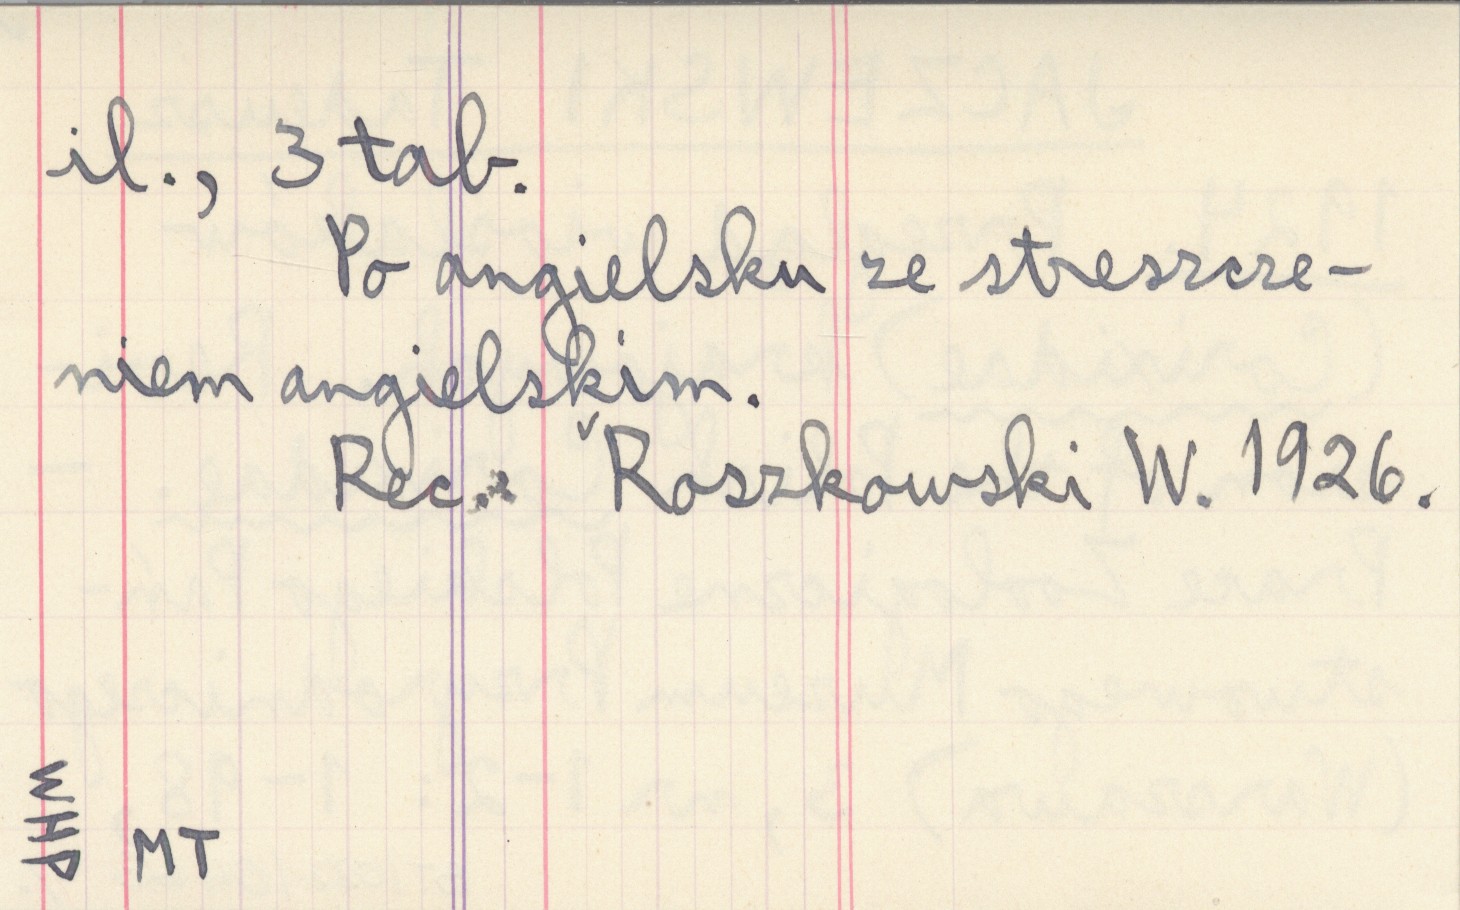 il., 3 tab.
Po angielsku ze streszcze-
niem angielskim.
Rec.: Roszkowski W. 1926.
WHD
MT